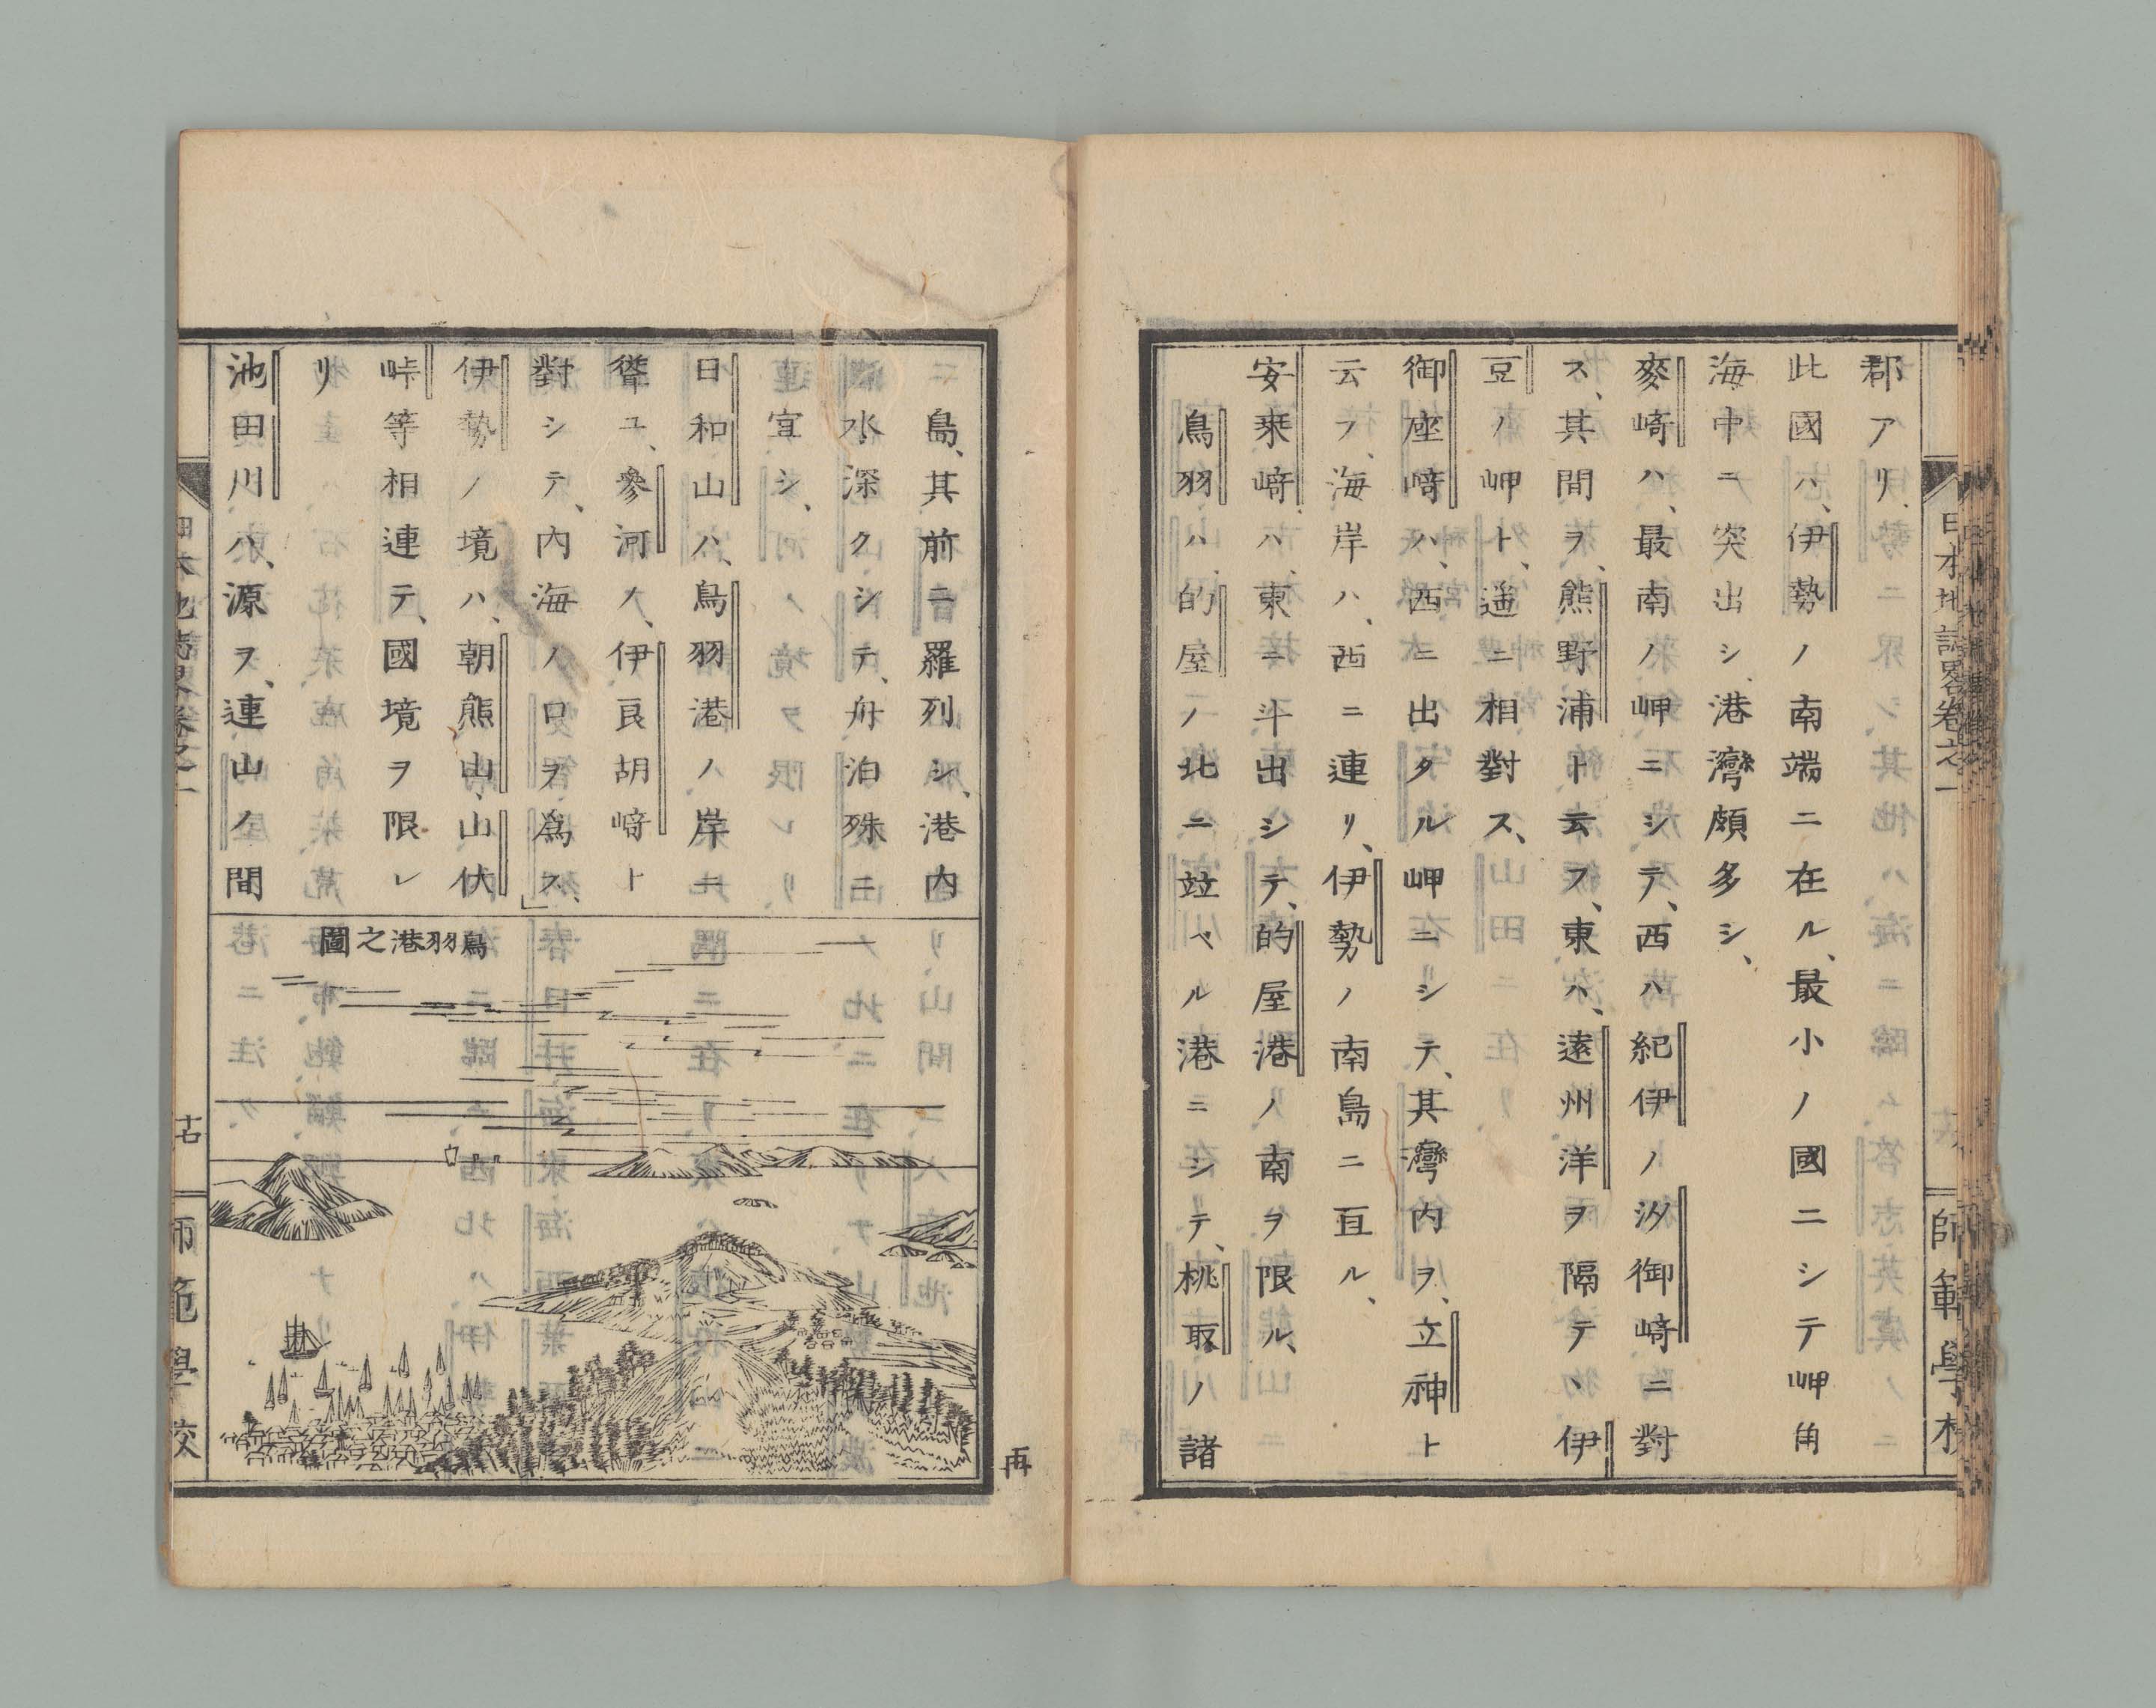 郡アリ、
此國ハ、伊勢ノ南端ニ在ル、最小ノ國ニシテ岬角
海中ニ突出シ、港灣頗多シ、
麥﨑ハ、最南ノ岬ニシテ、西ハ紀伊ノ汐御﨑ニ對
ス、其間ヲ、熊野浦ト云フ、東ハ、遠州洋ヲ隔テヽ伊
豆ノ岬ト、遥ニ相對ス、
御座﨑ハ、西ニ出タル岬ニシテ、其灣内ヲ、立神ト
云フ、海岸ハ、西ニ連リ、伊勢ノ南島ニ亘ル、
安乗﨑ハ、東ニ斗出シテ、的屋港ノ南ヲ限ル、
鳥羽ハ、的屋ノ北ニ竝ベル港ニシテ、桃取ノ諸
日本地誌略卷之一
師範學校
島、其前ニ羅列シ、港内
水深クシテ、舟泊殊ニ
宜シ、
日和山ハ、鳥羽港ノ岸ニ
聳ユ、參河ノ、伊良胡﨑ト
對シテ、内海ノ口ヲ爲ス、」
伊勢ノ境ハ、朝熊山、山伏
峠等相連テ、國境ヲ限レ
リ
池田川ハ、源ヲ、連山ノ間
鳥羽港之圖
日本地誌略卷之一
師範學校